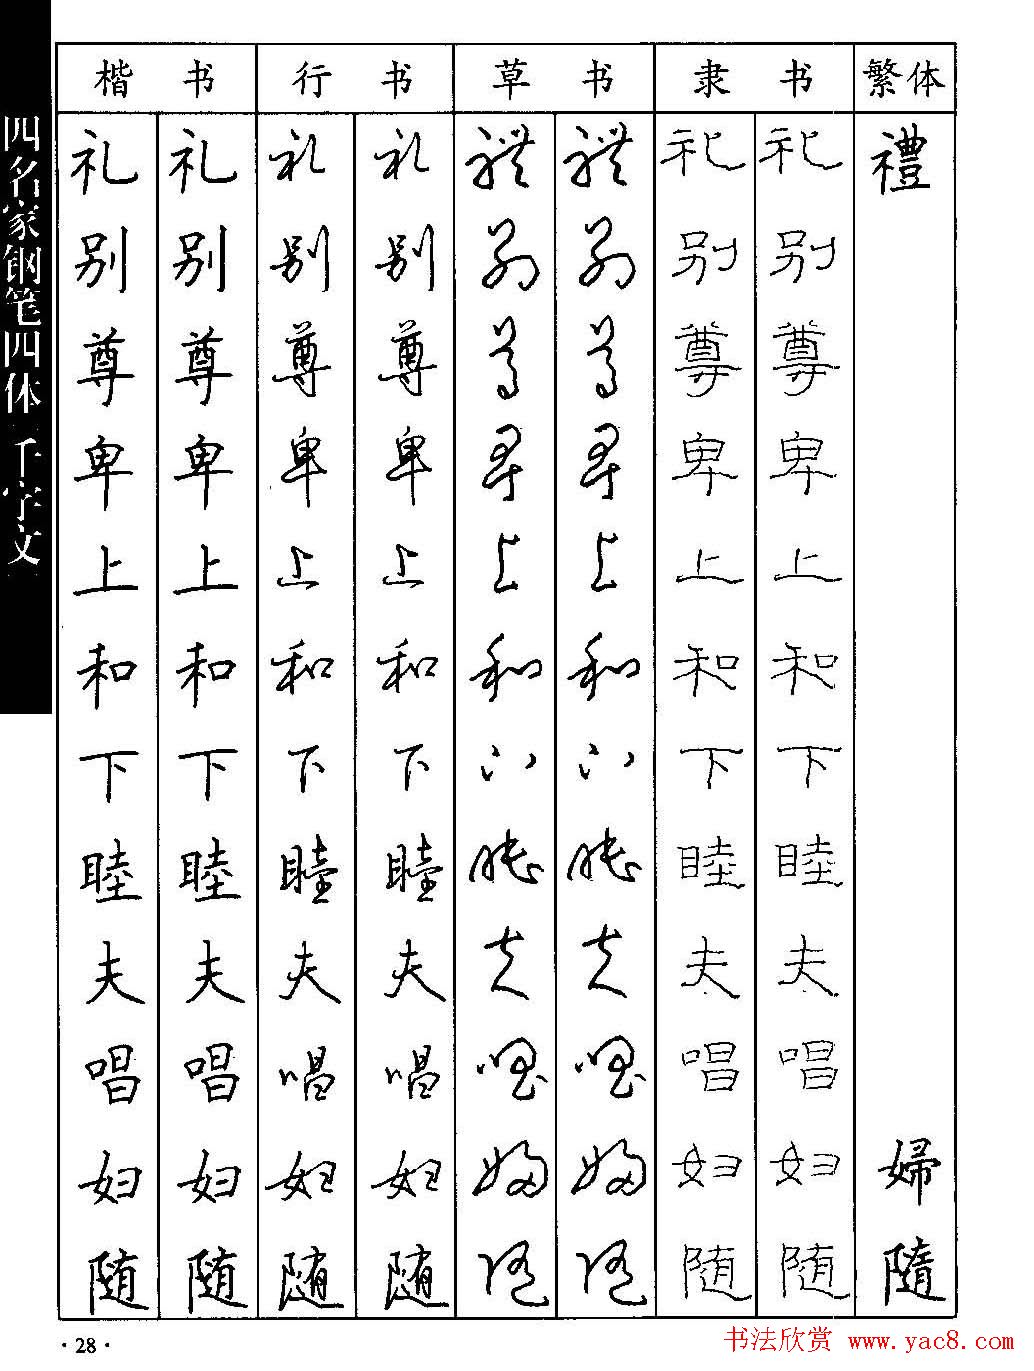 四名家钢笔四体千字文
楷书 行书 草书 隶书 繁体
礼 礼 礼 礼 礼 礼 礼 礼 禮
别 别 别 别 别 别 别 别
尊 尊 尊 尊 尊 尊 尊 尊
卑 卑 卑 卑 卑 卑 卑 卑
上 上 上 上 上 上 上 上
和 和 和 和 和 和 和 和
下 下 下 下 下 下 下 下
睦 睦 睦 睦 睦 睦 睦 睦
夫 夫 夫 夫 夫 夫 夫 夫
唱 唱 唱 唱 唱 唱 唱 唱
妇 妇 妇 妇 婦 婦 妇 妇 婦
随 随 随 随 随 随 随 随 隨
·28·
书法欣赏 www.yac8.com